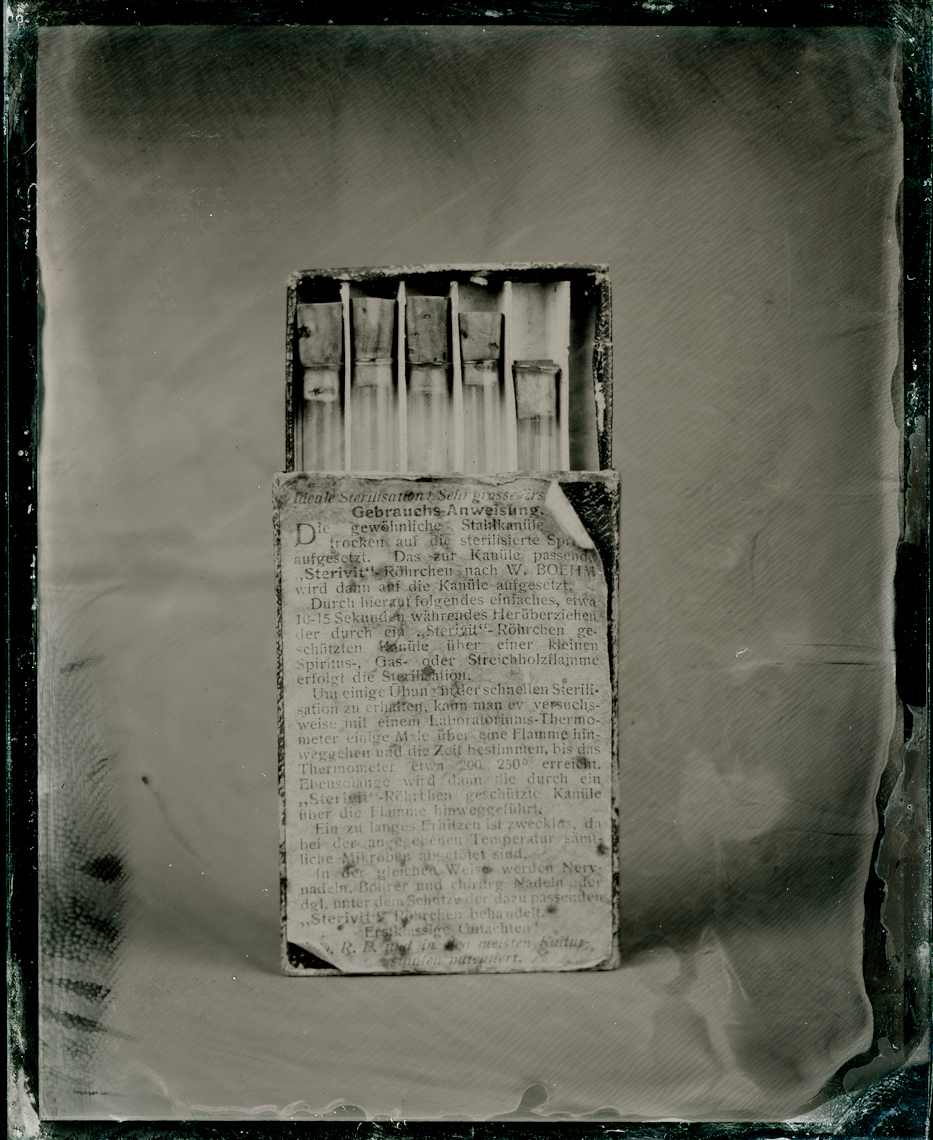 Ideale Sterilisation! Sehr grosse Ers
Gebrauchs-Anweisung.
Die gewöhnliche Stahlkanüle
trocken auf die sterilisierte Spr
aufgesetzt. Das zur Kanüle passende
„Sterivit“-Röhrchen nach W. BOEHM
wird dann auf die Kanüle aufgesetzt.
Durch hierauf folgendes einfaches, etwa
10-15 Sekunden währendes Herüberziehen
der durch ein „Sterivit“-Röhrchen ge-
schützten Kanüle über einer kleinen
Spiritus-, Gas- oder Streichholzflamme
erfolgt die Sterilisation.
Um einige Übung in der schnellen Sterili-
sation zu erhalten, kann man ev versuchs-
weise mit einem Laboratoriums-Thermo-
meter einige Male über eine Flamme hin-
weggehen und die Zeit bestimmen, bis das
Thermometer etwa 200 250° erreicht.
Ebensolange wird dann die durch ein
„Sterivit“-Röhrchen geschützte Kanüle
über die Flamme hinweggeführt.
Ein zu langes Erhitzen ist zwecklos, da
bei der angegebenen Temperatur sämt-
liche Mikroben abgetötet sind.
In der gleichen Weise werden Nerv-
nadeln, Bohrer und chirurg. Nadeln oder
dgl. unter dem Schutze der dazu passenden
„Sterivit“-Röhrchen behandelt.
Erstklassige Gutachten!
R. P. und in den meisten Kultur-
staaten patentiert.